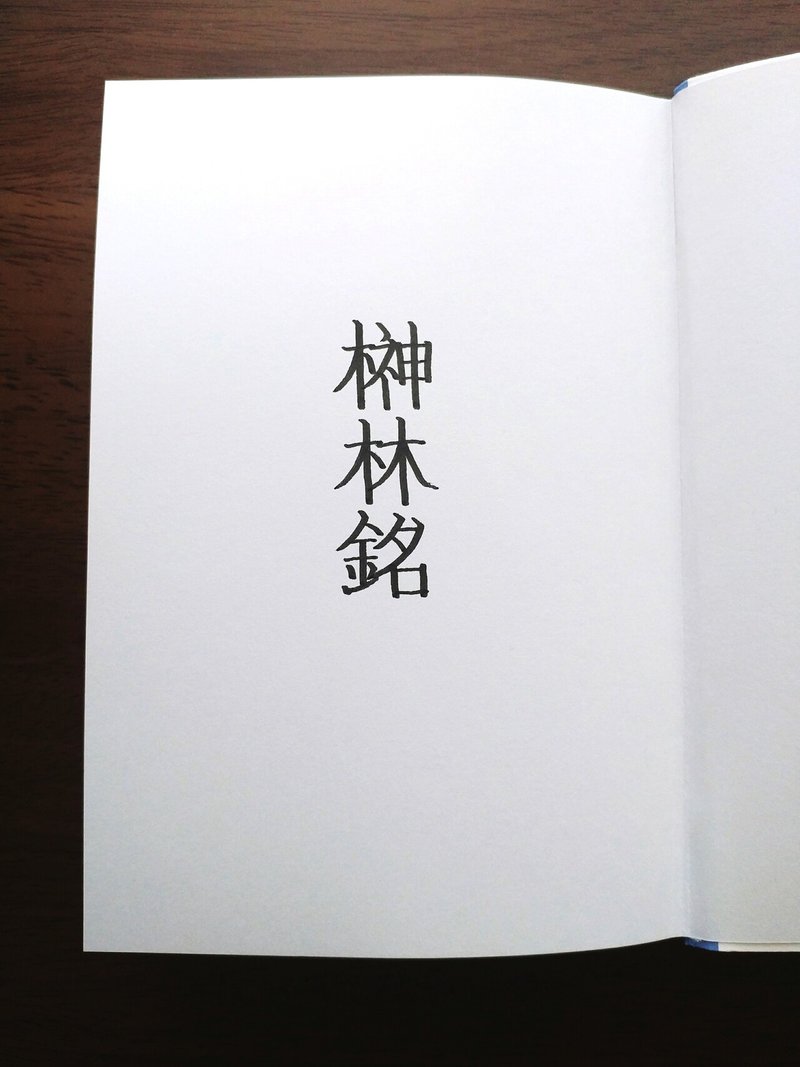 榊林銘